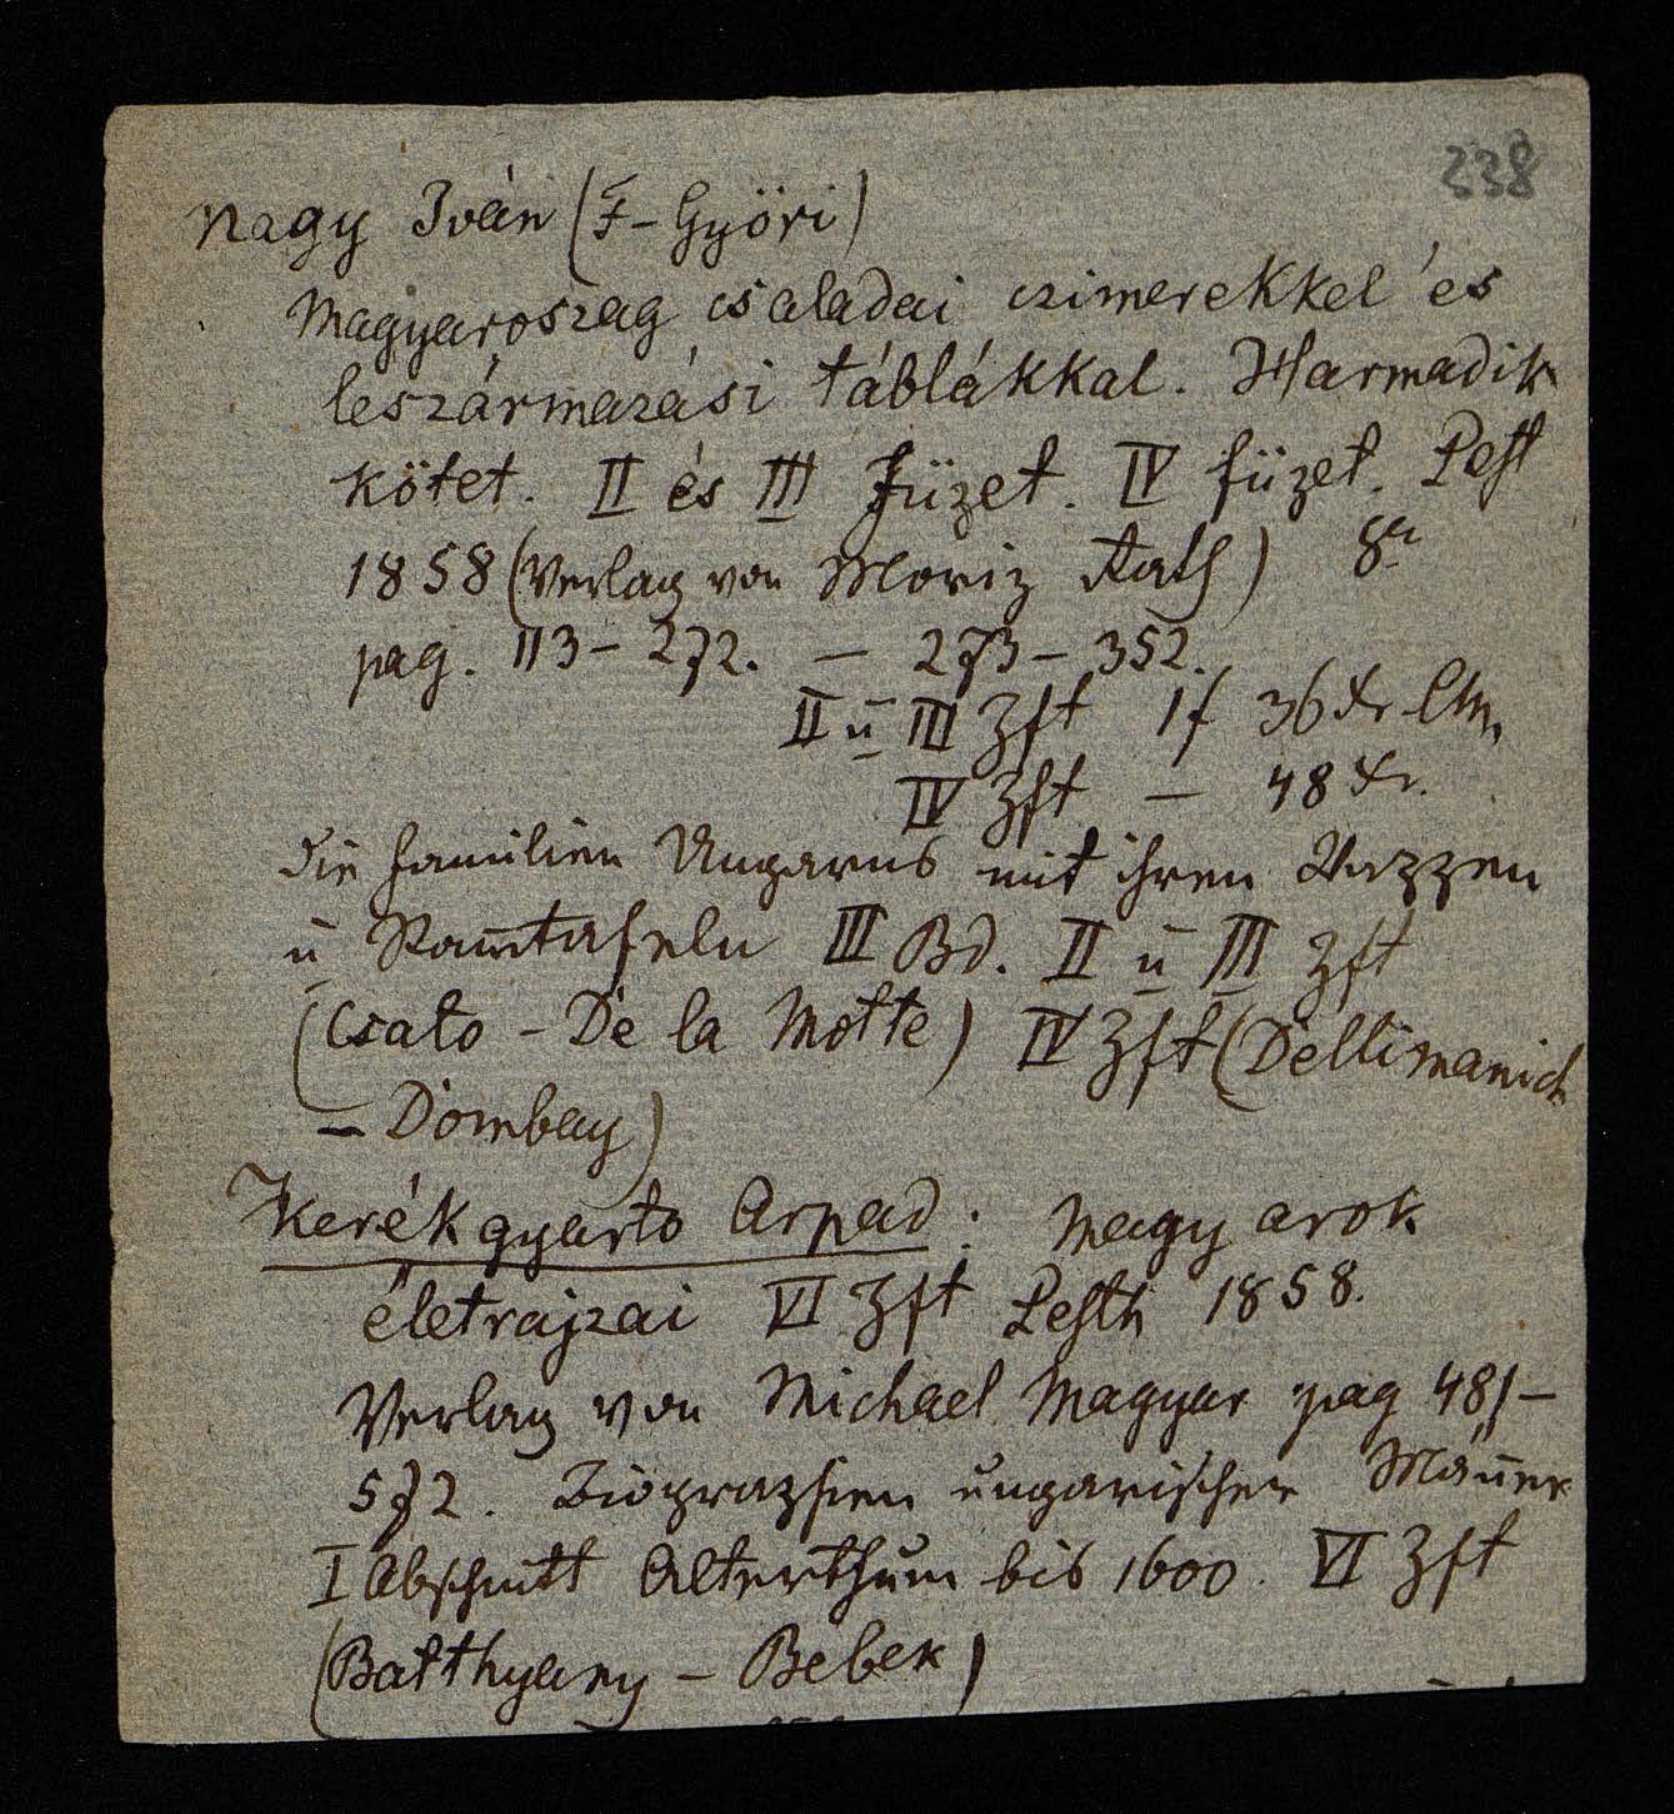 338
Nagy Iván (F-Györi)
Magyaroszag családai czimerekkel és
leszármazási táblákkal. Harmadik
kötet. II és III Füzet. IV füzet. Pest
1858 (Verlag von Moriz Rath) 8°
pag. 113-272. - 273-352.
II u III Hft 1f 36 Xr CM.
IV Hft - 48 Xr.
die Familien Ungarns mit ihren Wappen
u Stam̄tafeln III Bd. II u III Hft
(Csato - De la Motte) IV Hft (Dellimanich
- Dombay)
Kerékgyarto Arpad: Magyarok
életrajzai VI Hft Pesth 1858.
Verlag von Michael Magyar pag 481-
572. Biographien ungarischer Män̄er
I Abschnitt Alterthum bis 1600. VI Hft
(Batthyany - Bebek)